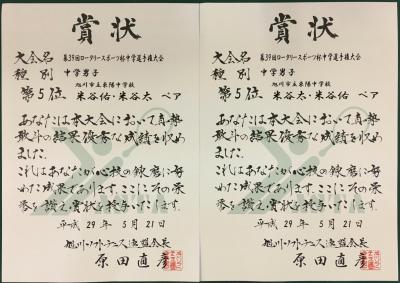 賞状
大会名 第39回ロータリースポーツ杯中学選手権大会
種別 中学男子
旭川市立東陽中学校
第5位 米谷佑・米谷太 ペア
あなたは本大会において真摯
敢斗の結果優秀な成績を収め
ました
これはあなたが心技の錬磨に努
めた成果であります ここにその栄
誉を讃え賞状を授与いたします
平成 29年 5月 21日
旭川ソフトテニス連盟会長
原田直彦
賞状
大会名 第39回ロータリースポーツ杯中学選手権大会
種別 中学男子
旭川市立東陽中学校
第5位 米谷太・米谷佑 ペア
あなたは本大会において真摯
敢斗の結果優秀な成績を収め
ました
これはあなたが心技の錬磨に努
めた成果であります ここにその栄
誉を讃え賞状を授与いたします
平成 29年 5月 21日
旭川ソフトテニス連盟会長
原田直彦